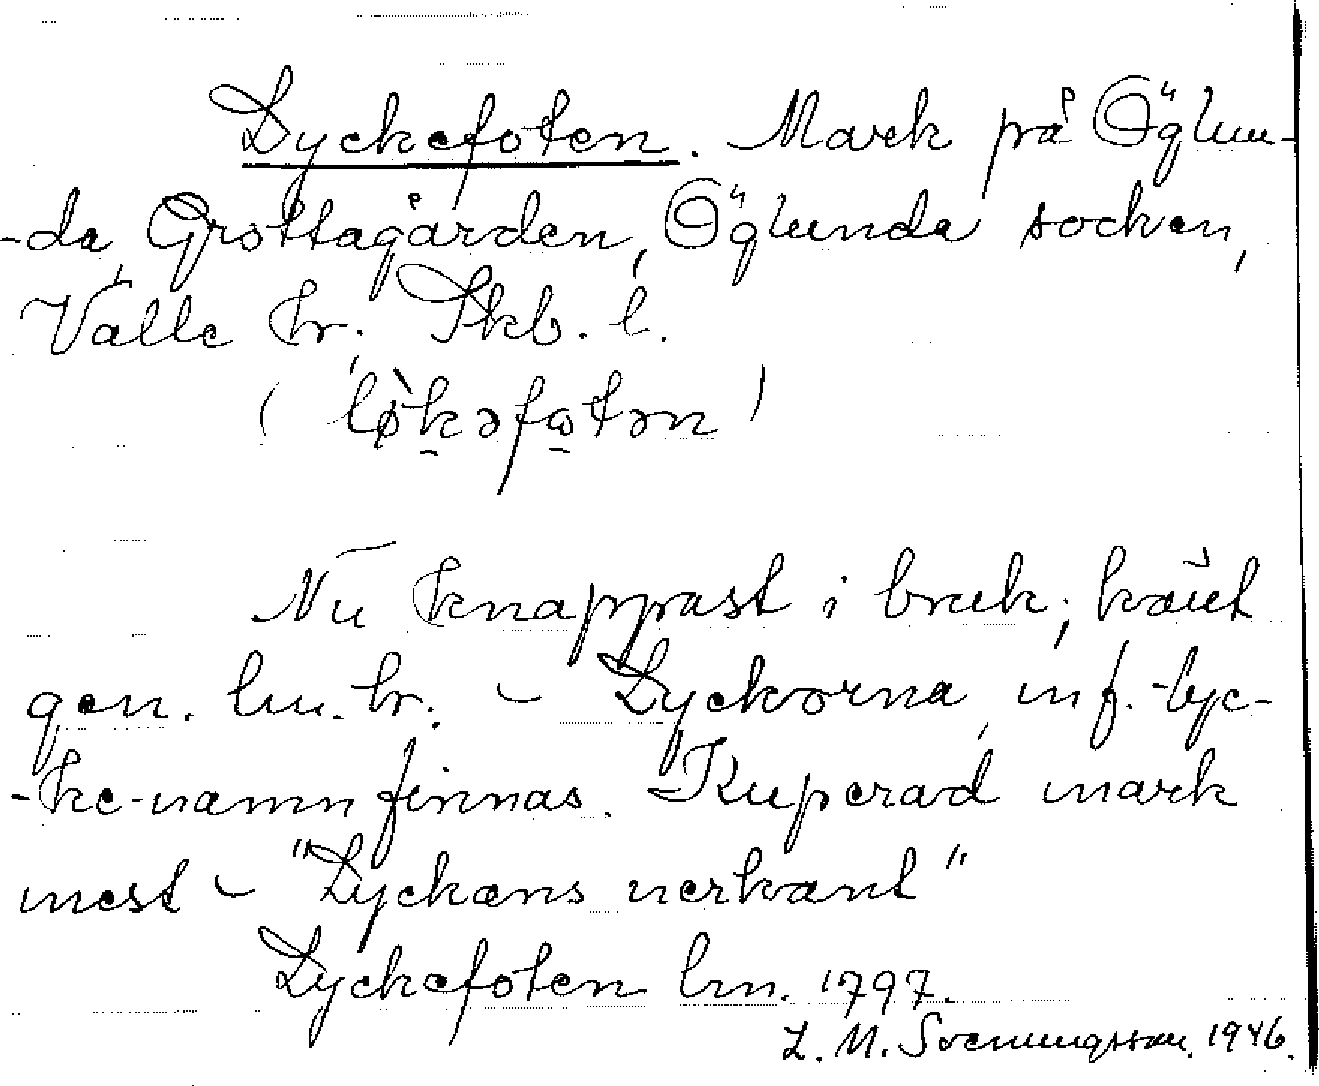 Lyckefoten. Mark på Öglun-
-da, Grottagården, Öglunda socken,
Valle hr. Skb. l.
( lø̀kəfωtən )
Nu knappast i bruk; känt
gen. lm. hr. – Lyckorna, inf. lyc-
-ke-namn finnas. Kuperad mark
mest – "Lyckans nerkant"
Lyckefoten lm. 1797.
L. M. Svenungsson. 1946.